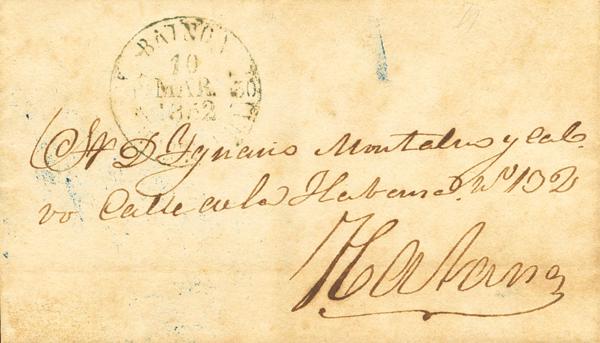 BAINOA
10
MAR.
1852
Sr. D. Ygnacio Montalvo y Cal-
vo Calle de la Habana Nº 132
Habana